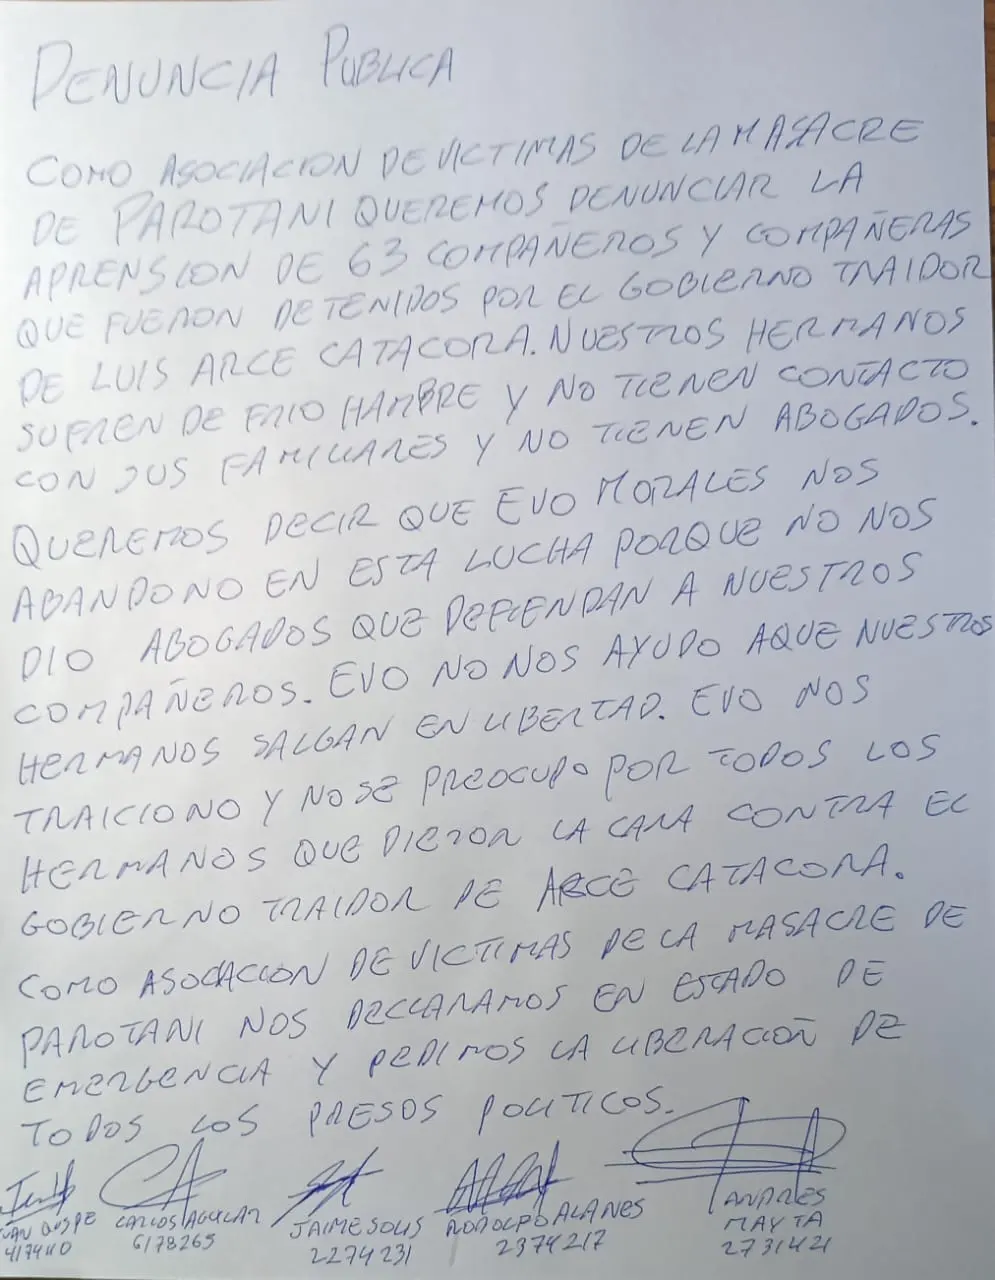 DENUNCIA PUBLICA
COMO ASOCIACION DE VICTIMAS DE LA MASACRE
DE PAROTANI QUEREMOS DENUNCIAR LA
APRENSION DE 63 COMPAÑEROS Y COMPAÑERAS
QUE FUERON DETENIDOS POR EL GOBIERNO TRAIDOR
DE LUIS ARCE CATACORA. NUESTROS HERMANOS
SUFREN DE FRIO HAMBRE Y NO TIENEN CONTACTO
CON SUS FAMILIARES Y NO TIENEN ABOGADOS.
QUEREMOS DECIR QUE EVO MORALES NOS
ABANDONO EN ESTA LUCHA PORQUE NO NOS
DIO ABOGADOS QUE DEFIENDAN A NUESTROS
COMPAÑEROS. EVO NO NOS AYUDO AQUE NUESTROS
HERMANOS SALGAN EN LIBERTAD. EVO NOS
TRAICIONO Y NO SE PREOCUPO POR TODOS LOS
HERMANOS QUE DIERON LA CARA CONTRA EL
GOBIERNO TRAIDOR DE ARCE CATACORA.
COMO ASOCIACION DE VICTIMAS DE LA MASACRE DE
PAROTANI NOS DECLARAMOS EN ESTADO DE
EMERGENCIA Y PEDIMOS LA LIBERACIÓN DE
TODOS LOS PRESOS POLITICOS.
QUISPE CARLOS AGUILAR JAIME SOLIS RODOLFO ALANES ANDRES
MAYTA
6178265 2274231 2374217 2731421